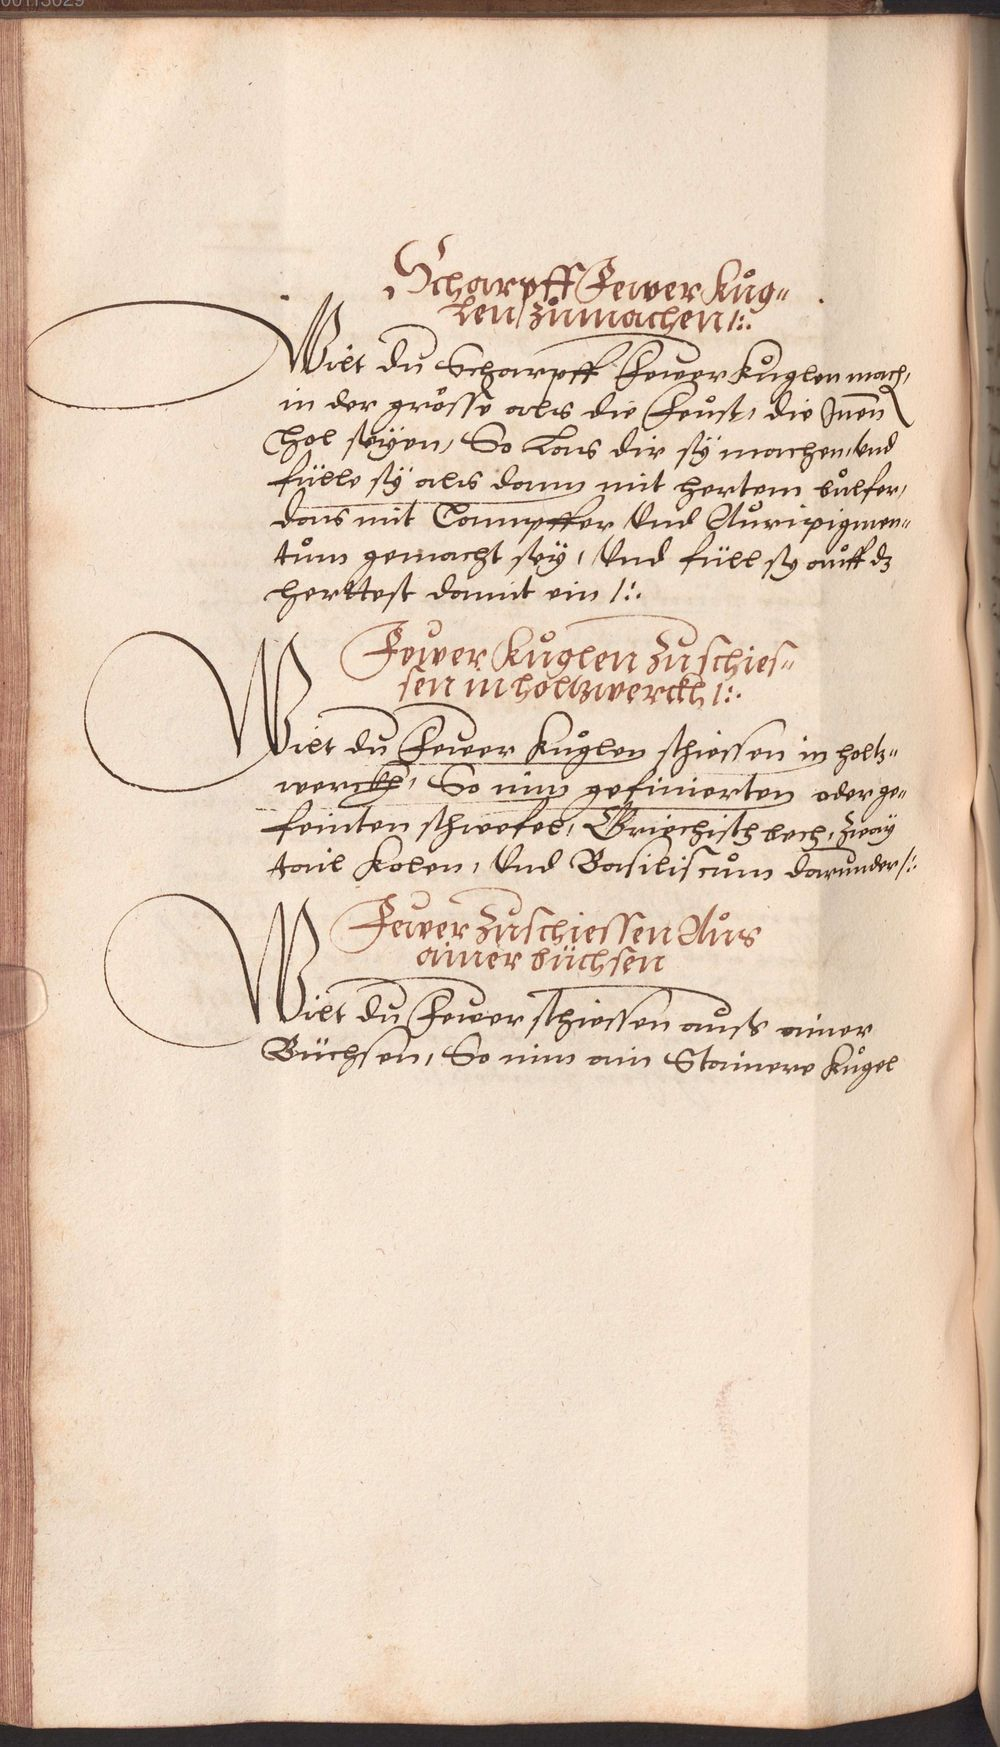 00113029
Scharpff Fewer Kůg=
len zůmachen /:.
Wilt du Scharpff Fewer Kůglen mach,
in der grösse als die Feůst, die Inen
Hol seyen, So Las dir sÿ machen, Vnd
fülle sÿ als dann mit hertem bulfer,
das mit Campffer Vnd Auripigmen=
tům gemacht seÿ, Vnd füll sy auff dz
herttest damit ein /:.
Fewer Kůglen zu schies=
sen in holtzwerckh /:.
Wilt du Fewer Kůglen schiessen in holtz=
werckh, So nim gefinierten oder ge=
feinten schwefel, Griechisch bech, zwaÿ
tail Kolen, Vnd Basiliscům darunder /:.
Fewer zuschiessen Aůs
ainer büchsen
Wilt du Fewer schiessen auß ainer
Büchsen, So nim ain Stainere Kůgel